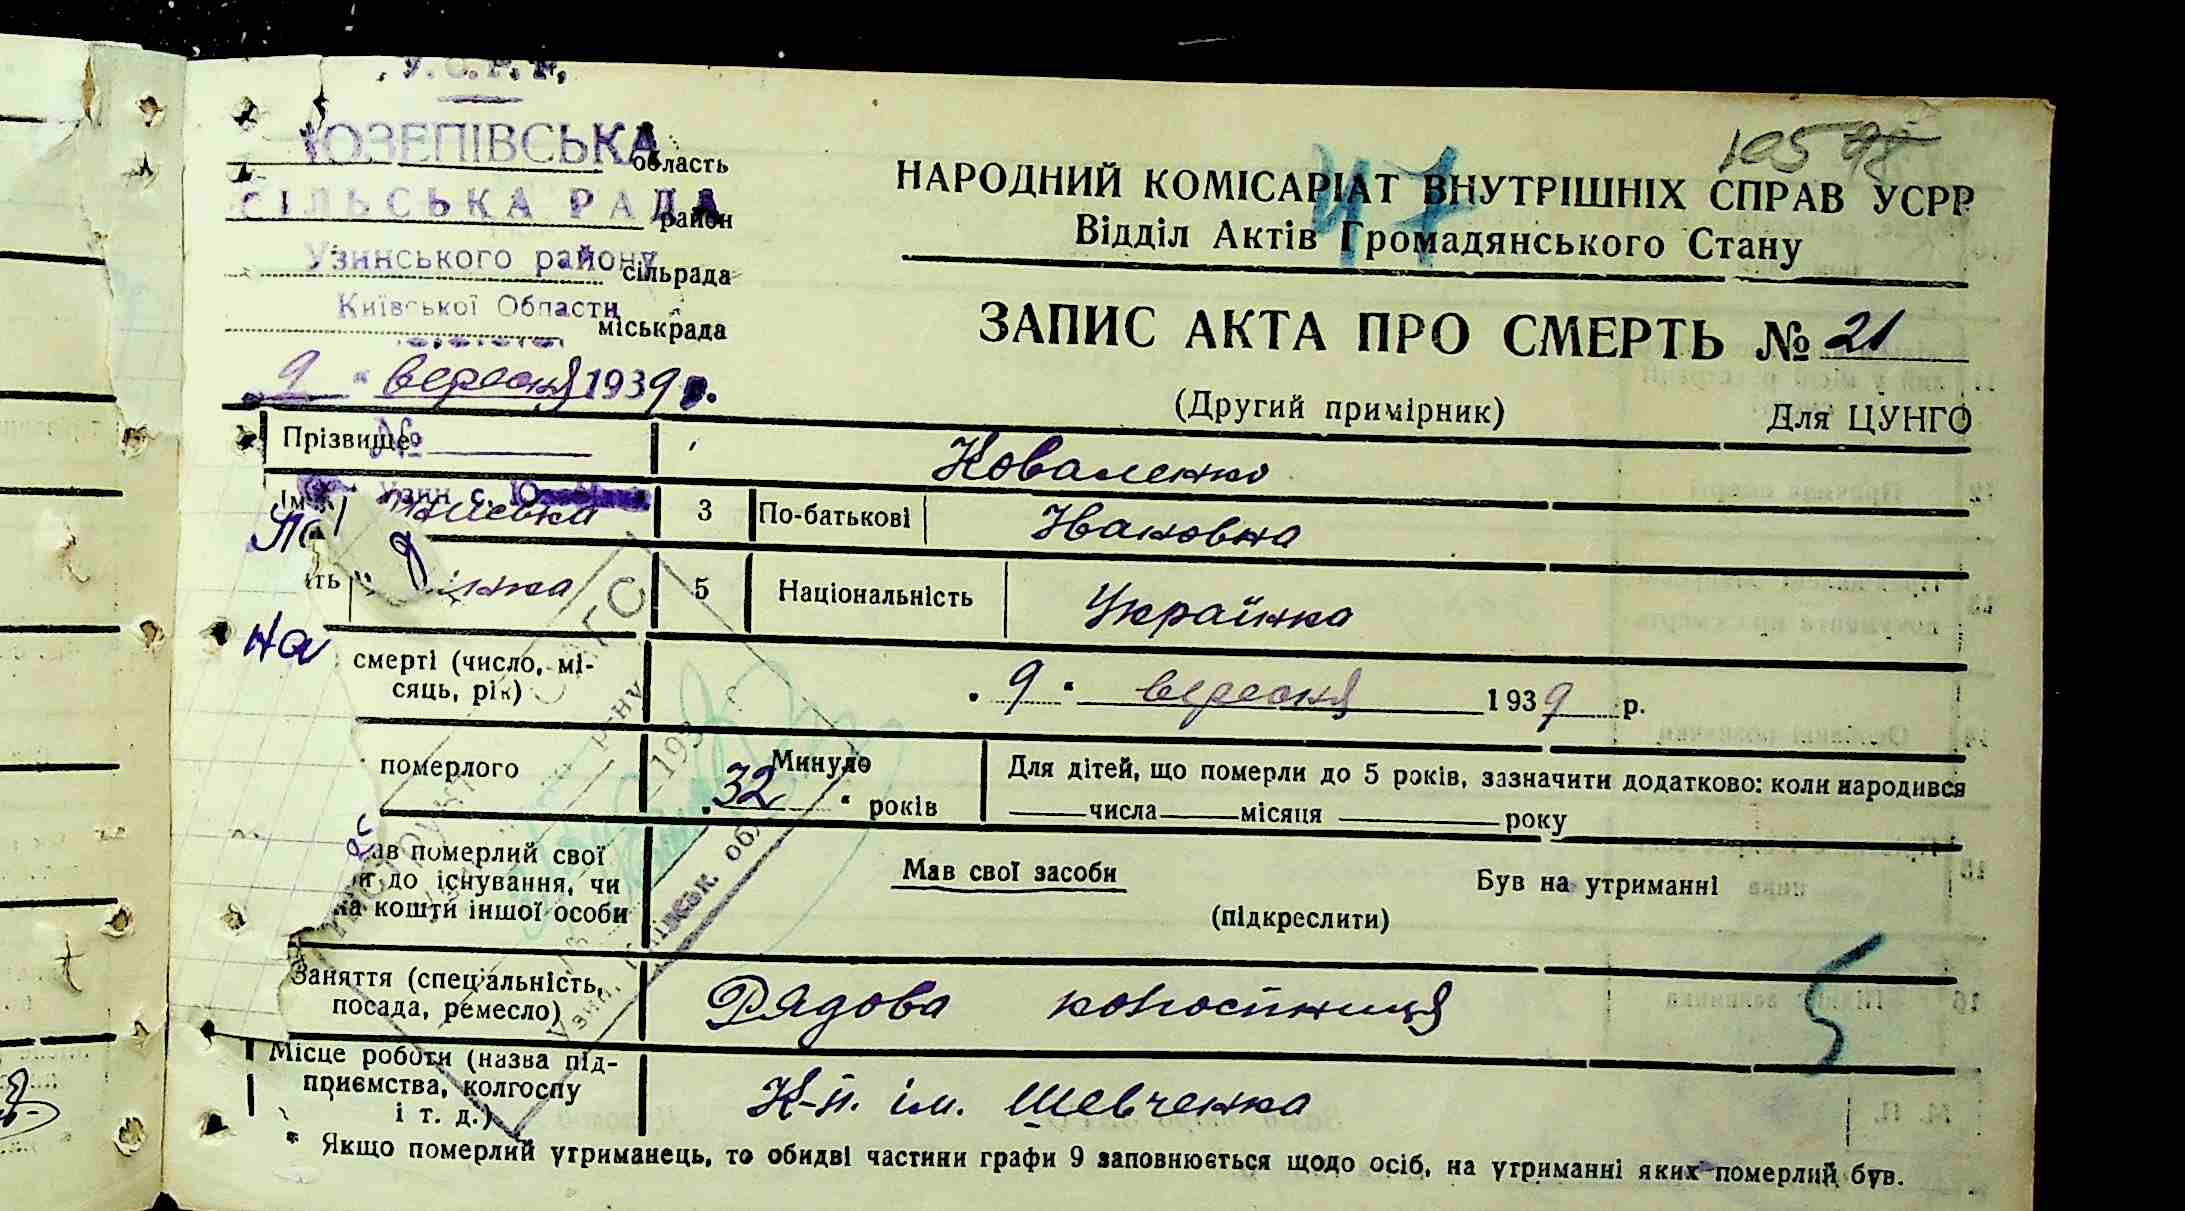 У.С.Р.Р.
ЮЗЕПІВСЬКА
область
СІЛЬСЬКА РАДА
район
Узинського району
сільрада
Київської Области
міськрада
9 " вересня 1939 р.
№
105 98
47
НАРОДНИЙ КОМІСАРІАТ ВНУТРІШНІХ СПРАВ УСРР
Відділ Актів Громадянського Стану
ЗАПИС АКТА ПРО СМЕРТЬ № 21
(Другий примірник)
Для ЦУНГО
Прізвище
Коваленко
Узин с. Ю
3 По-батькові Івановна
5 Національність Українка
На
смерті (число, мі-
сяць, рік)
9 " вересня 1939 р.
померлого
Минуло
32 " років
Для дітей, що померли до 5 років, зазначити додатково: коли народився
числа місяця року
ав померлий свої
и до існування, чи
на кошти іншої особи
Мав свої засоби
Був на утриманні
(підкреслити)
Заняття (спеціальність,
посада, ремесло)
Рядова
5
Місце роботи (назва під-
приємства, колгоспу
і т. д.)
К-п. ім. Шевченка
* Якщо померлий утриманець, то обидві частини графи 9 заповнюється щодо осіб, на утриманні яких померлий був.